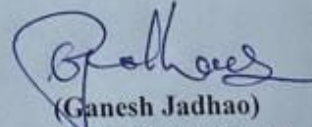 (Ganesh Jadhao)